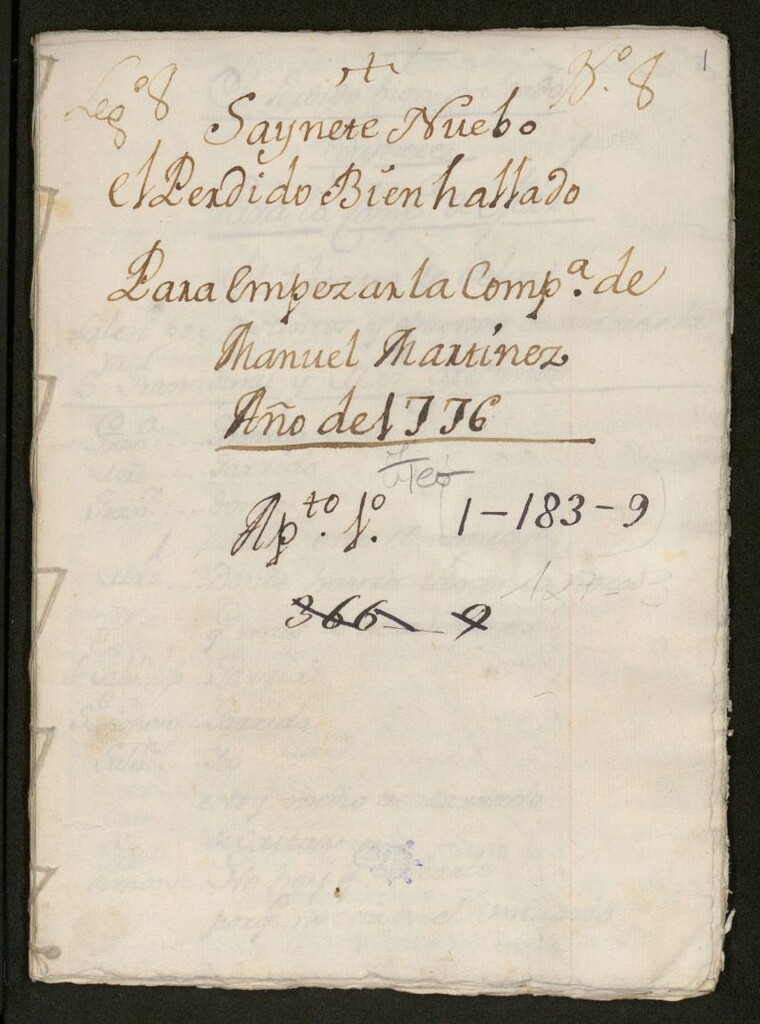 Leg.º 8
N.º 8
1
Saynete Nuebo
el Perdido Bien hallado
Para Empezar la Comp.ª de
Manuel Martinez
Año de 1776
Ap.to 1.º
1-183-9
366 - 9